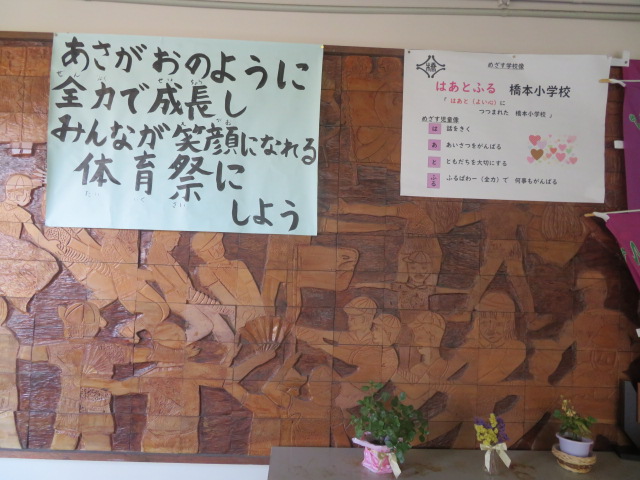 あさがおのように
全力で成長し
みんなが笑顔になれる
体育祭に
しよう
めざす学校像
はあとふる 橋本小学校
「はあと(よい心)に
つつまれた 橋本小学校」
めざす児童像
は 話をきく
あ あいさつをがんばる
と ともだちを大切にする
ふる ふるぱわー(全力)で 何事もがんばる